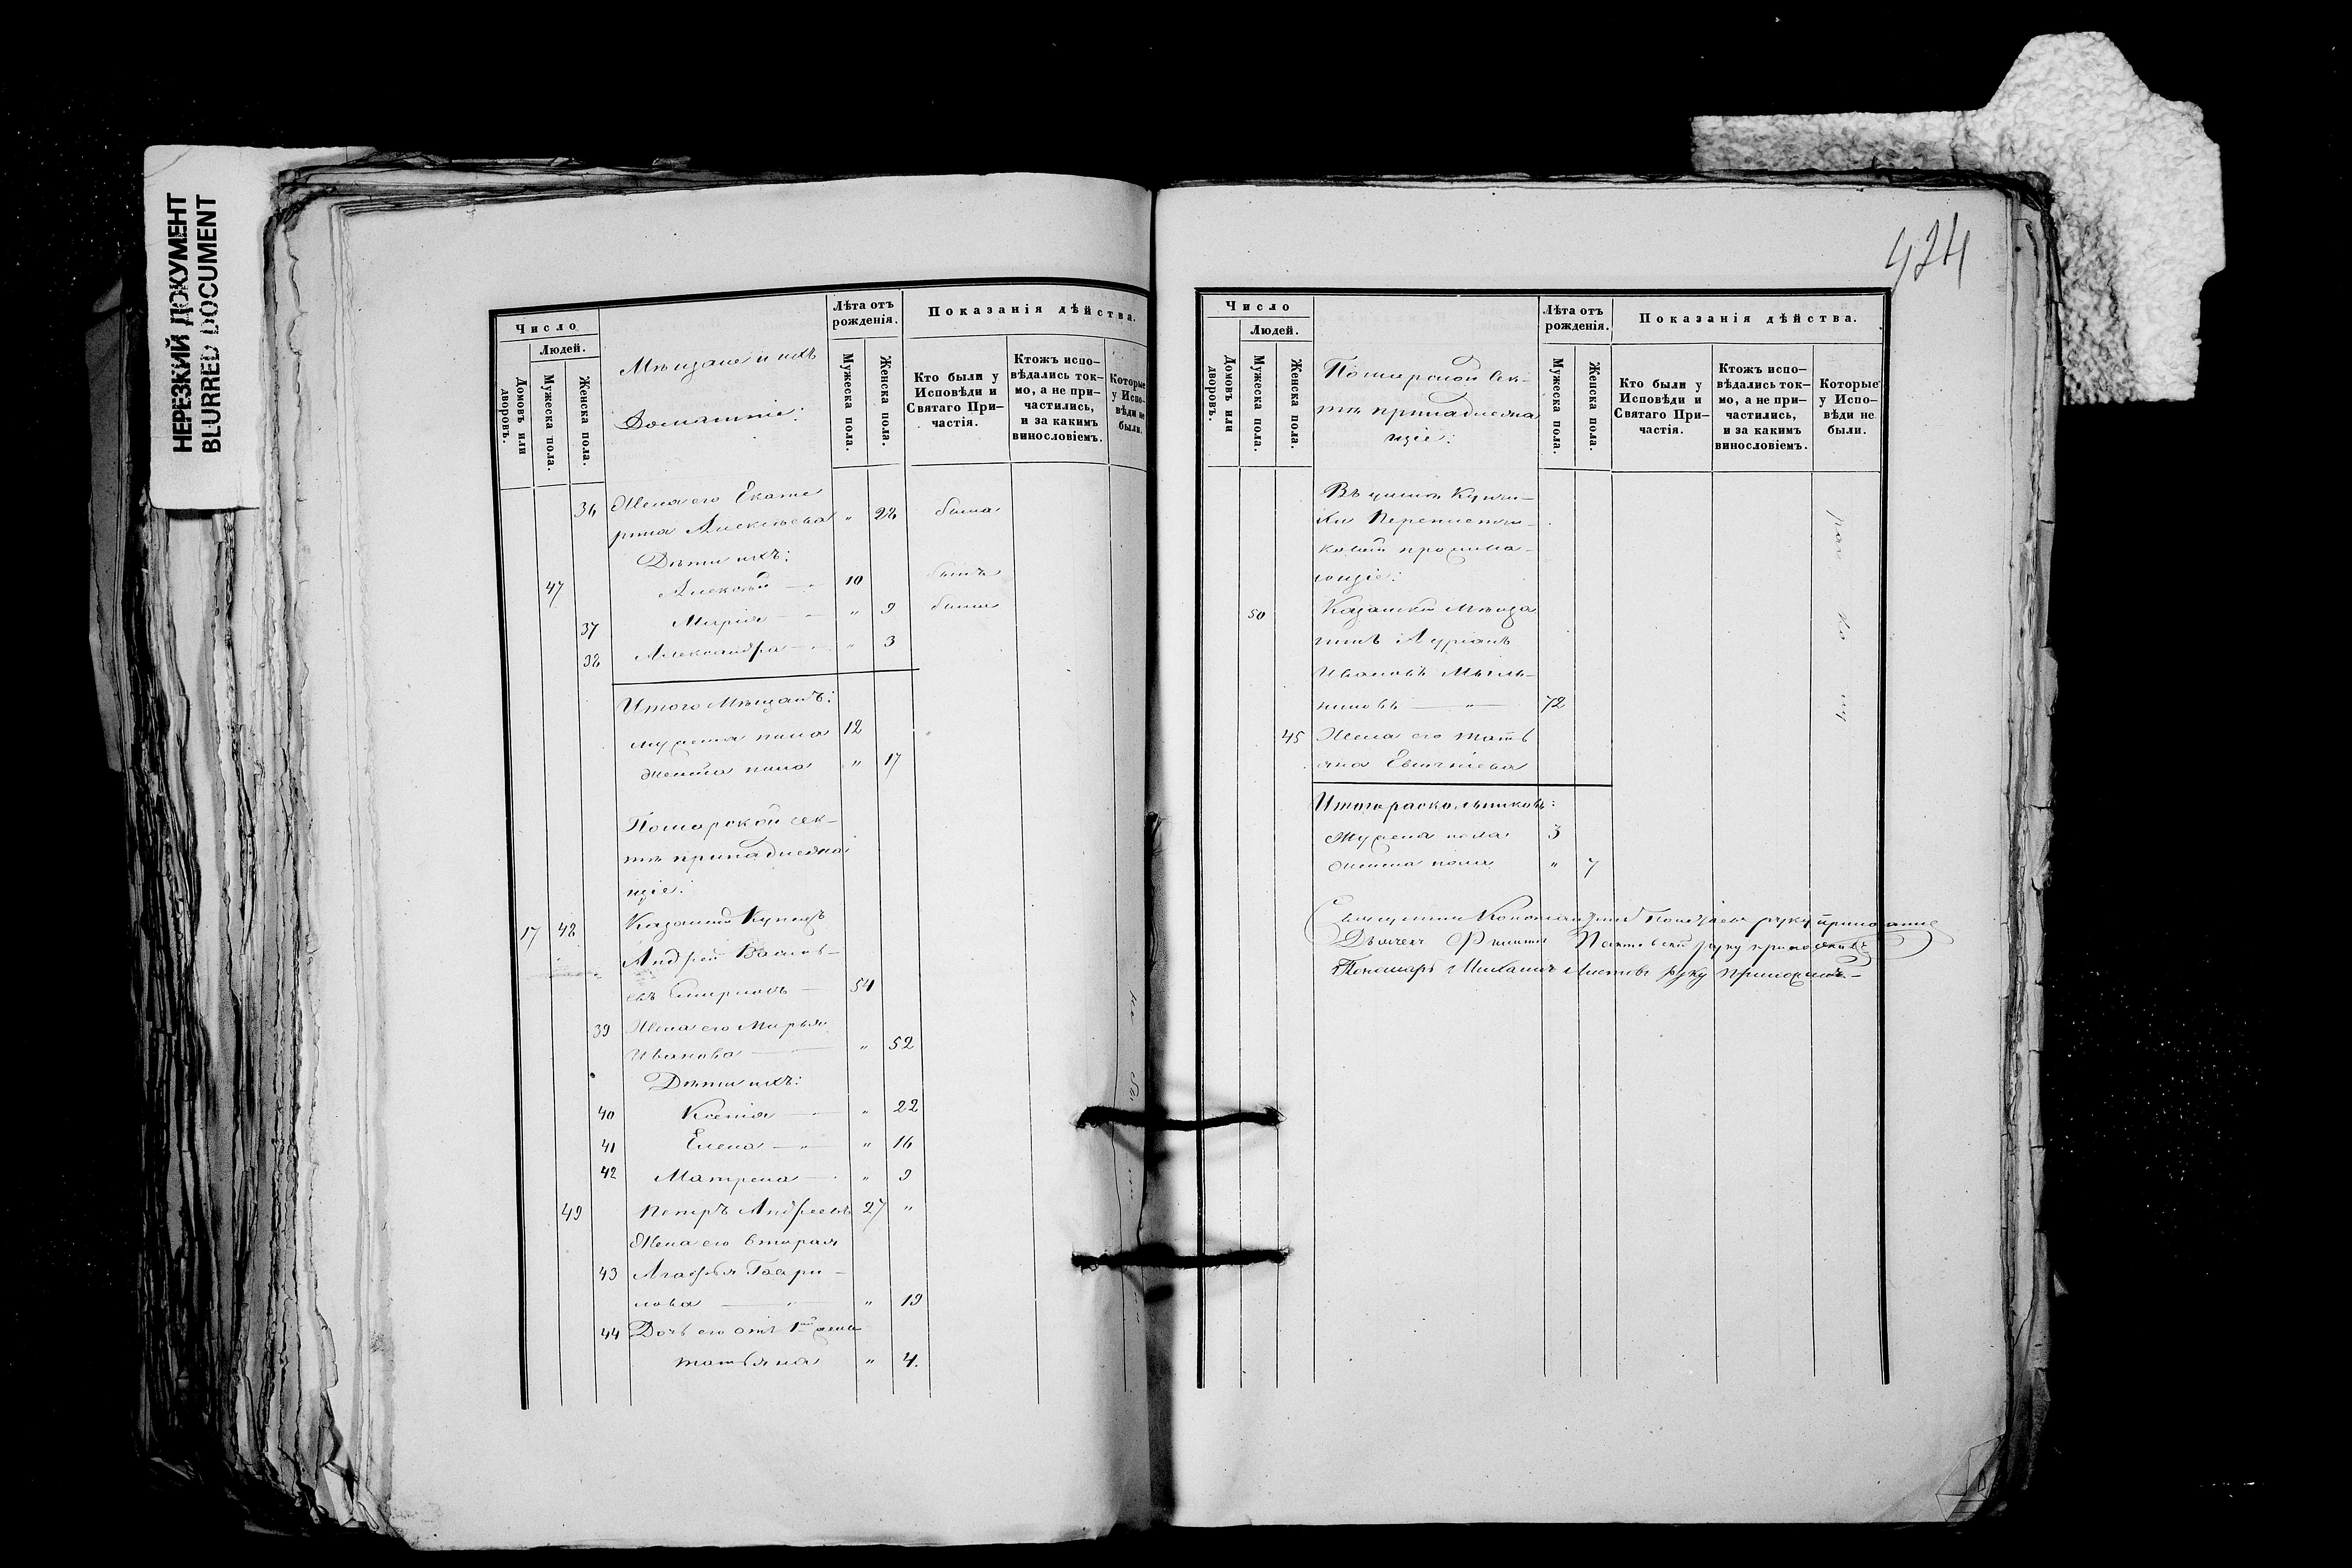 НЕРЕЗКИЙ ДОКУМЕНТ
BLURRED DOCUMENT
Число
Людей.
Домовъ или дворовъ.
Мужеска пола.
Женска пола.
Мѣщане и ихъ
Домашніе:
Лѣта отъ рожденія.
Мужеска пола.
Женска пола.
Показанія дѣйства.
Кто были у Исповѣди и Святаго При-
частія.
Ктожъ испо-
вѣдались ток-
мо, а не при-
частились,
и за какимъ
винословіемъ.
Которые
у Испо-
вѣди не
были.
36 Жена его Екате
рина Алексѣева " 28 была
Дѣти ихъ:
47 Алексѣй — 10 былъ
37 Марія — " 9 была
38 Александра — " 3
Итого Мѣщанъ:
мужеска пола 12
женска пола " 17
Поморской сек-
тѣ принадлежа
щіе:
17 48 Казанскій Купецъ
Андрей Василь-
евъ Смирновъ — 54
39 Жена его Марья
Иванова — " 52
Дѣти ихъ:
40 Ксенія — " 22
41 Елена — " 16
42 Матрена — " 9
49 Петръ Андреевъ 27 "
Жена его вторая
43 Агафья Гаври-
лова — " 19
44 Дочь его отъ 1й жены
Татьяна " 4.
424
Число
Людей.
Домовъ или дворовъ.
Мужеска пола.
Женска пола.
Поморской Сек-
тѣ принадлежа
щіе:
Лѣта отъ рожденія.
Мужеска пола.
Женска пола.
Показанія дѣйства.
Кто были у Исповѣди и Святаго При-
частія.
Ктожъ испо-
вѣдались ток-
мо, а не при-
частились,
и за какимъ
винословіемъ.
Которые
у Испо-
вѣди не
были.
Въ Купчи-
хи
прожива-
ющіе:
50 Казанскій Мѣща
нинъ
Ивановъ Мыль-
никовъ — " — 72
45 Жена его Тать
яна
Итого раскольниковъ:
Мужеска пола 3
женска пола " 7
Священникъ руку приложилъ
руку приложилъ
Пономарь Михаилъ руку приложилъ